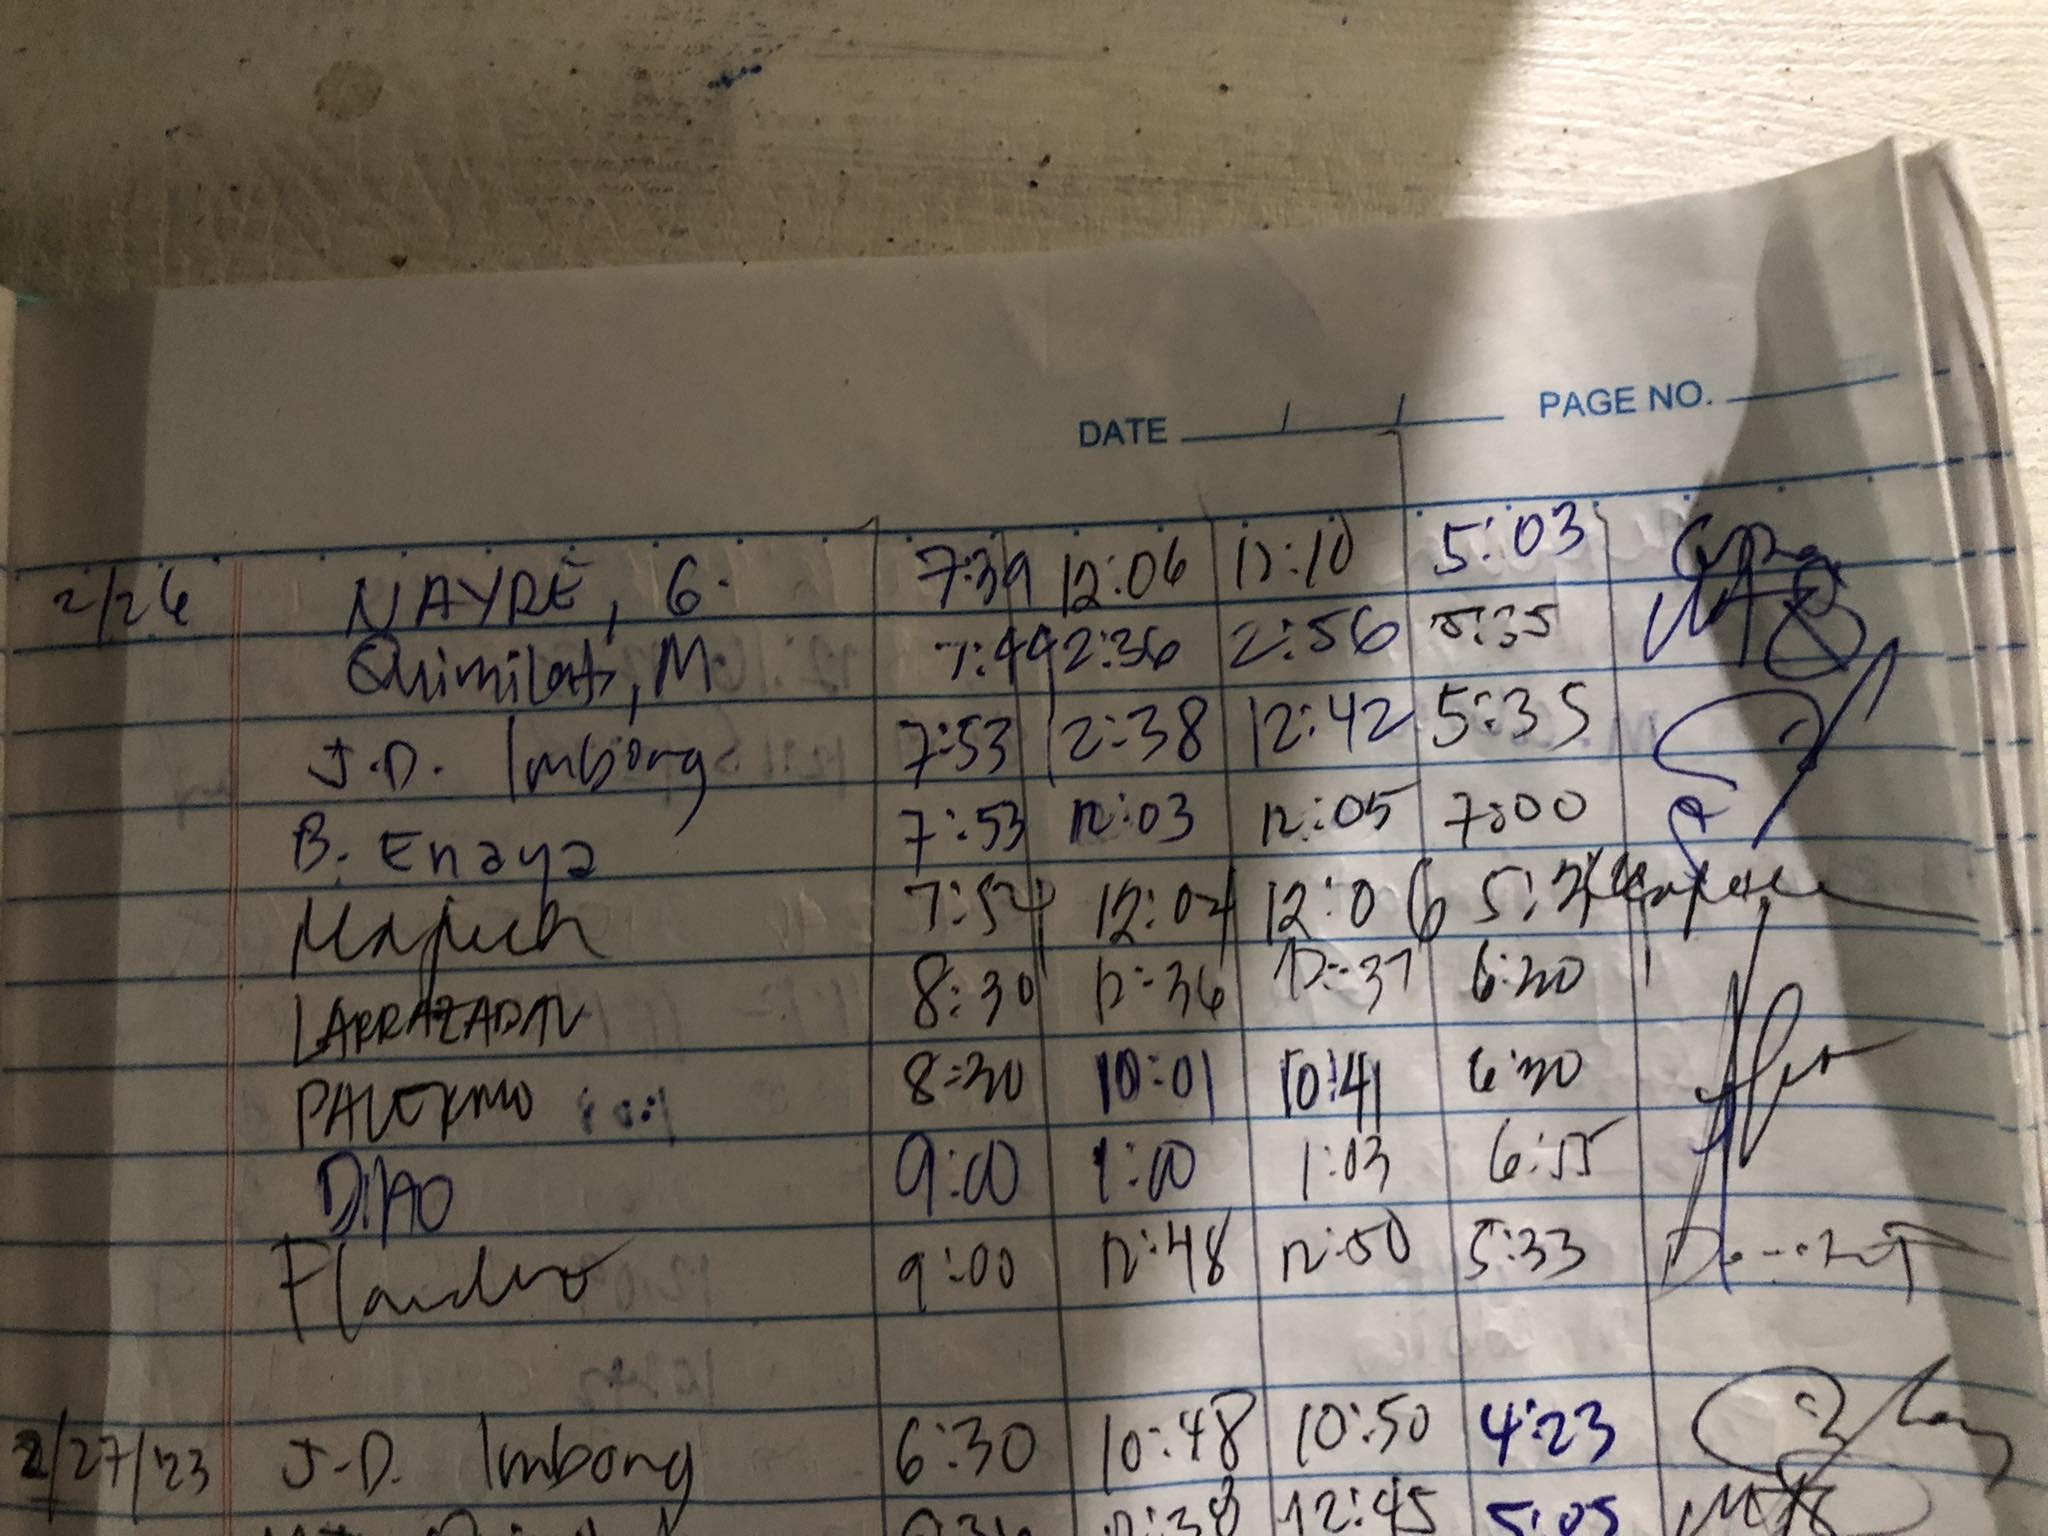 DATE / / PAGE NO.
2/26 NAYRE, G. 7:39 12:06 12:10 5:03
Quimilat, M 7:49 2:36 2:56 5:35
J.D. Imbong 7:53 12:38 12:42 5:35
B. Enaya 7:53 12:03 12:05 7:00
7:54 12:04 12:06
LARRAZABAL 8:30 12:36 12:37 6:30
PALERMO 8:30 10:01 10:41 6:30
DILAO 9:00 1:00 1:03 6:55
9:00 12:48 12:50 5:33
2/27/23 J.D. Imbong 6:30 10:48 10:50 4:23
12:38 12:45 5:05